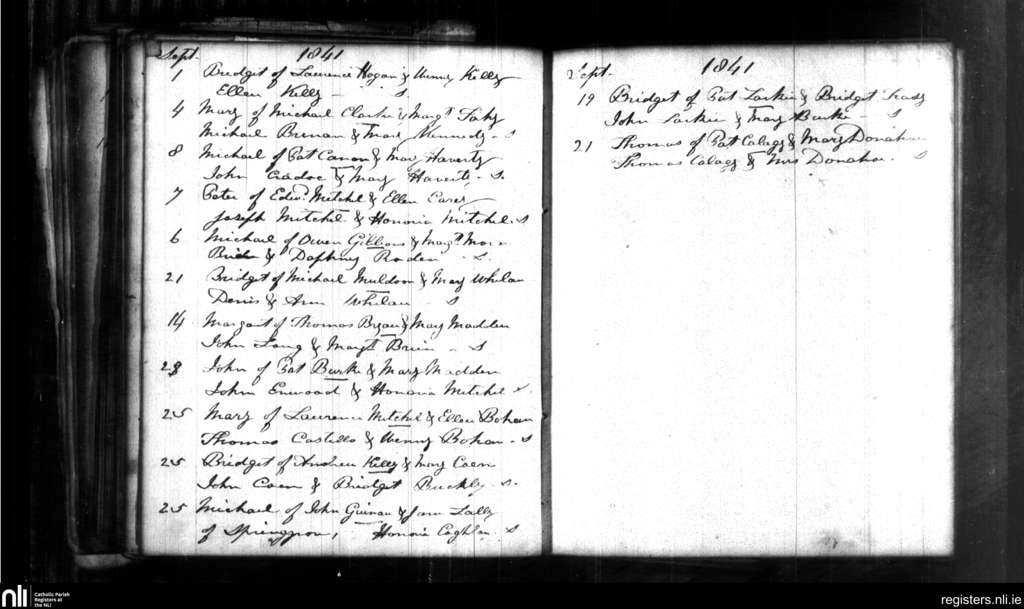 Sept. 1841
1 Bridget of Laurence Hogan & Winny Kelly
Ellen Kelly S
4 Mary of Michael Clarke & Margt. Fahy
Michael Brenan & Mary Kennedy - S
8 Michael of Pat Canon & Mary Haverty
John & Mary Haverty - S.
7 Peter of Edwd. Mitchel & Ellen Carey
Joseph Mitchel & Honoria Mitchel. S
6 Michael of Owen Gibbons & Margt.
& Roden - S.
21 Bridget of Michael Muldoon & Mary Whelan
Denis & Ann Whelan - S
14 Margaret of Thomas Bryan & Mary Madden
John & Margt. Brien - S
28 John of Pat Burke & Mary Madden
John & Honoria Mitchel S.
25 Mary of Laurence Mitchel & Ellen Bohan
Thomas Costello & Winny Bohan - S
25 Bridget of Andrew Kelly & Mary Coen
John Coen & Bridget Buckly. S.
25 Michael of John Guinan & Jane Lally
of Honoria Coghlan. S
Sept. 1841
19 Bridget of Pat Larkin & Bridget
John Larkin & Mary Burke - S
21 Thomas of Pat & Mary Donahue
Thomas & Mrs Donahoe. S
nli Catholic Parish
Registers at
the NLI
registers.nli.ie